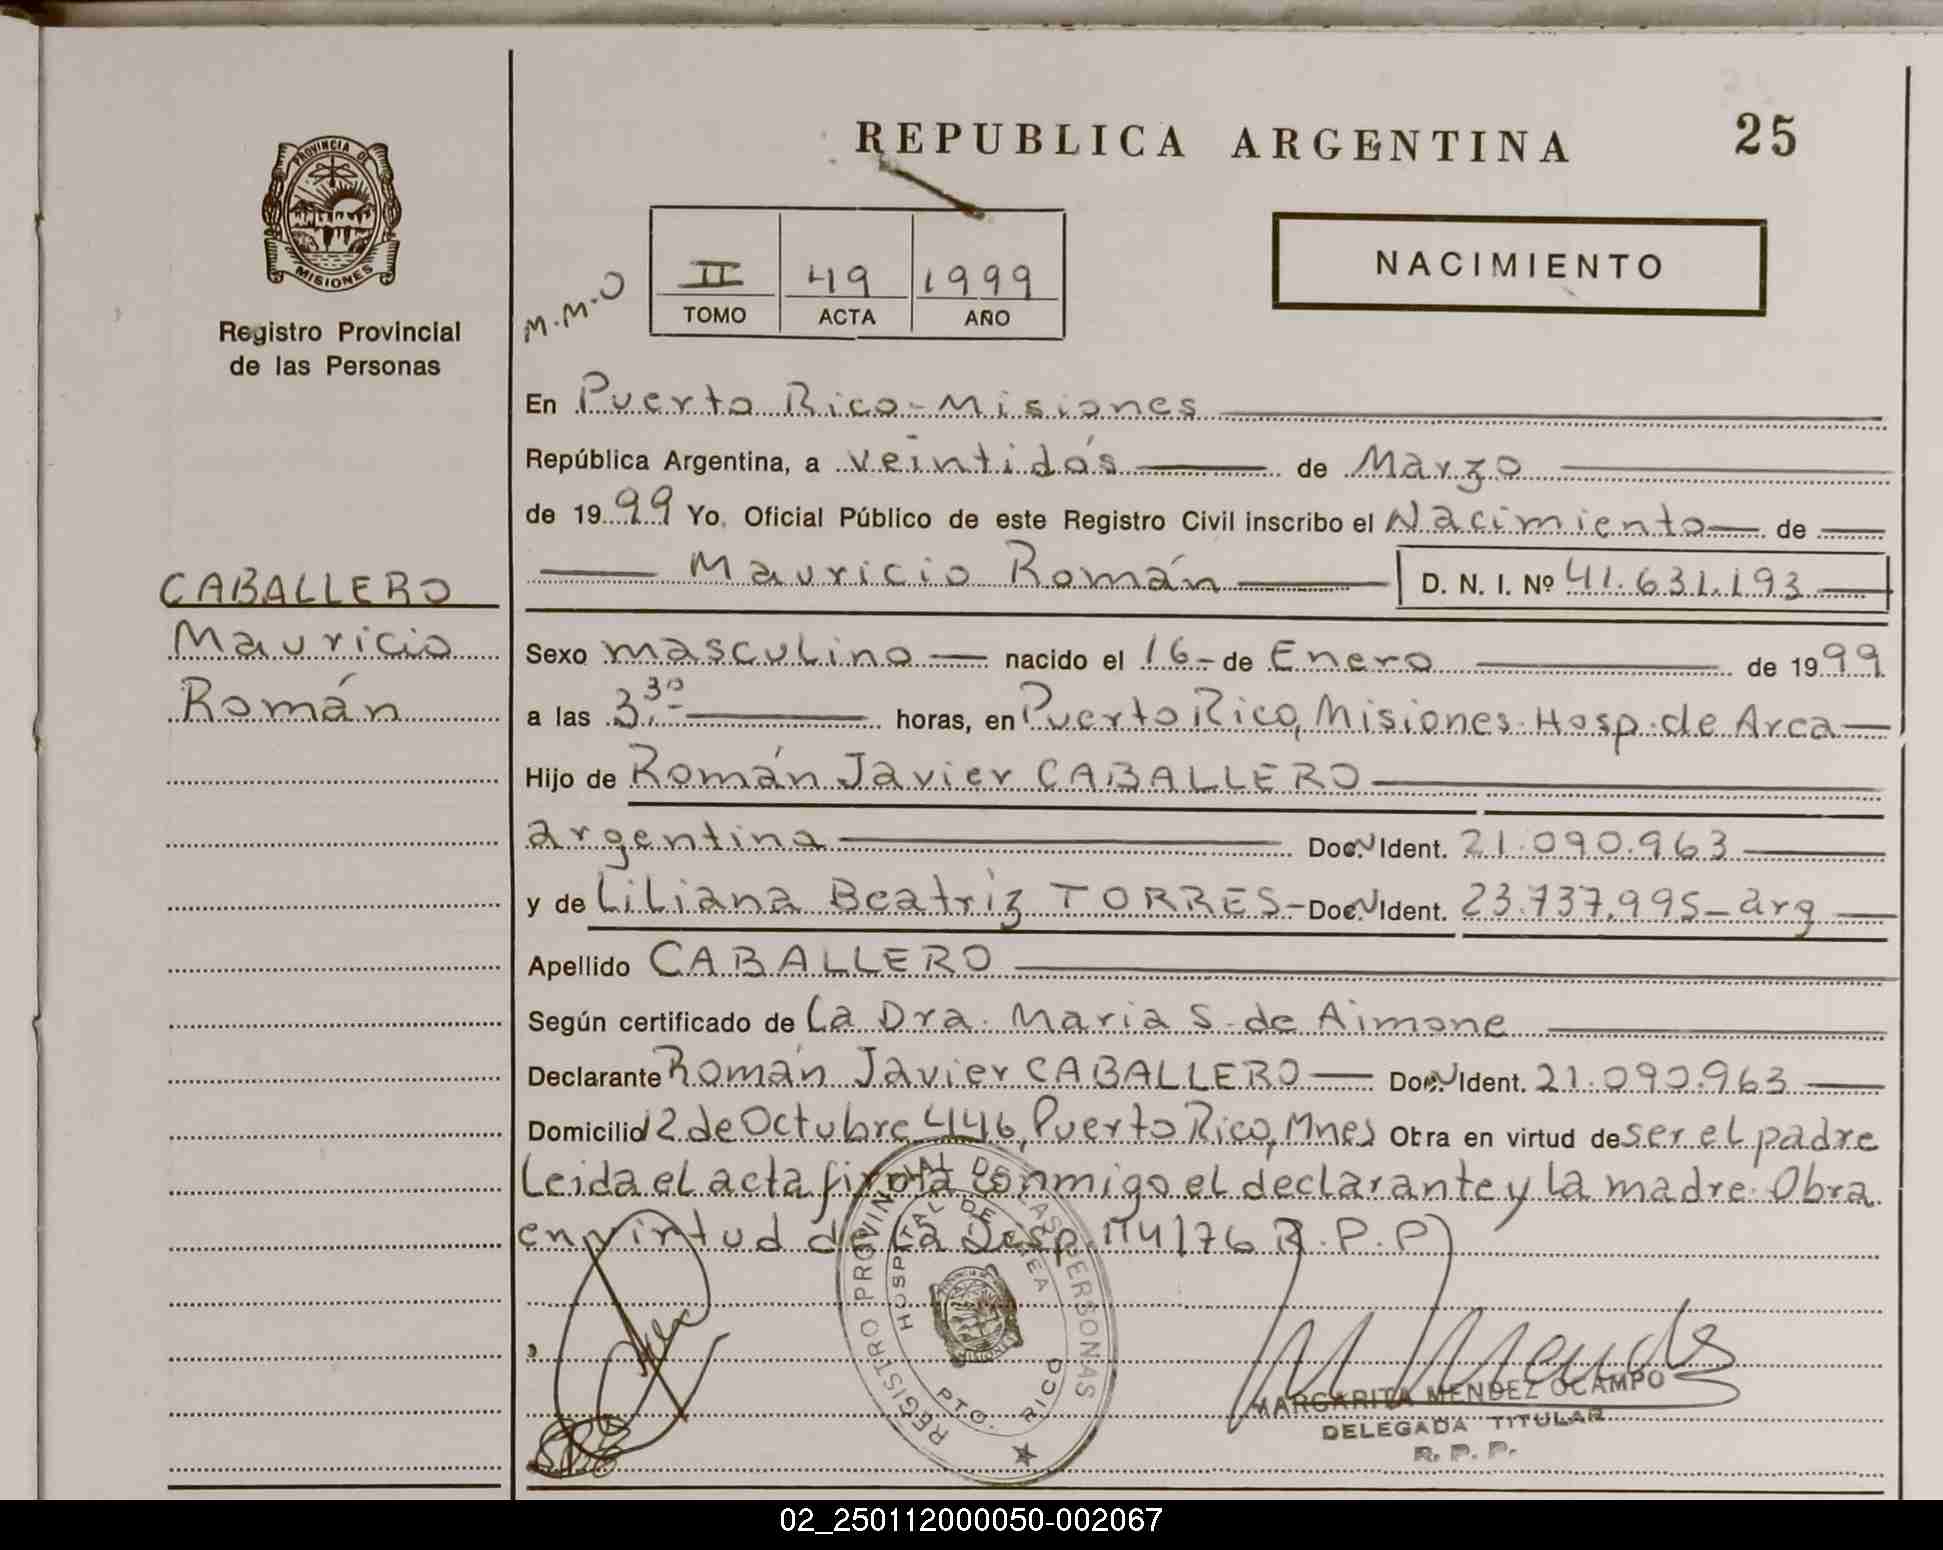 REPUBLICA ARGENTINA
25
PROVINCIA DE
MISIONES
Registro Provincial
de las Personas
M.M.O
II 49 1999
TOMO ACTA AÑO
NACIMIENTO
En Puerto Rico - Misiones
República Argentina, a veintidós de Marzo
de 1999 Yo, Oficial Público de este Registro Civil inscribo el Nacimiento de
Mauricio Román D. N. I. Nº 41.631.193
CABALLERO
Mauricio
Román
Sexo masculino nacido el 16 - de Enero de 1999
a las 3,30 horas, en Puerto Rico, Misiones. Hosp. de Area
Hijo de Román Javier CABALLERO
argentina Doc. N Ident. 21.090.963
y de Liliana Beatriz TORRES - Doc. N Ident. 23.737.995 - arg
Apellido CABALLERO
Según certificado de La Dra. Maria S. de Aimone
Declarante Román Javier CABALLERO Doc. N Ident. 21.090.963
Domicilio 12 de Octubre 446, Puerto Rico, Mnes Obra en virtud de ser el padre
Leida el acta firma conmigo el declarante y la madre. Obra
en virtud de La Disp. 114/76 R.P.P)
REGISTRO PROVINCIAL DE LAS PERSONAS
HOSPITAL DE AREA
PTO. RICO
M. Mendez
MARGARITA MENDEZ OCAMPO
DELEGADA TITULAR
R. P. P.
02_250112000050-002067